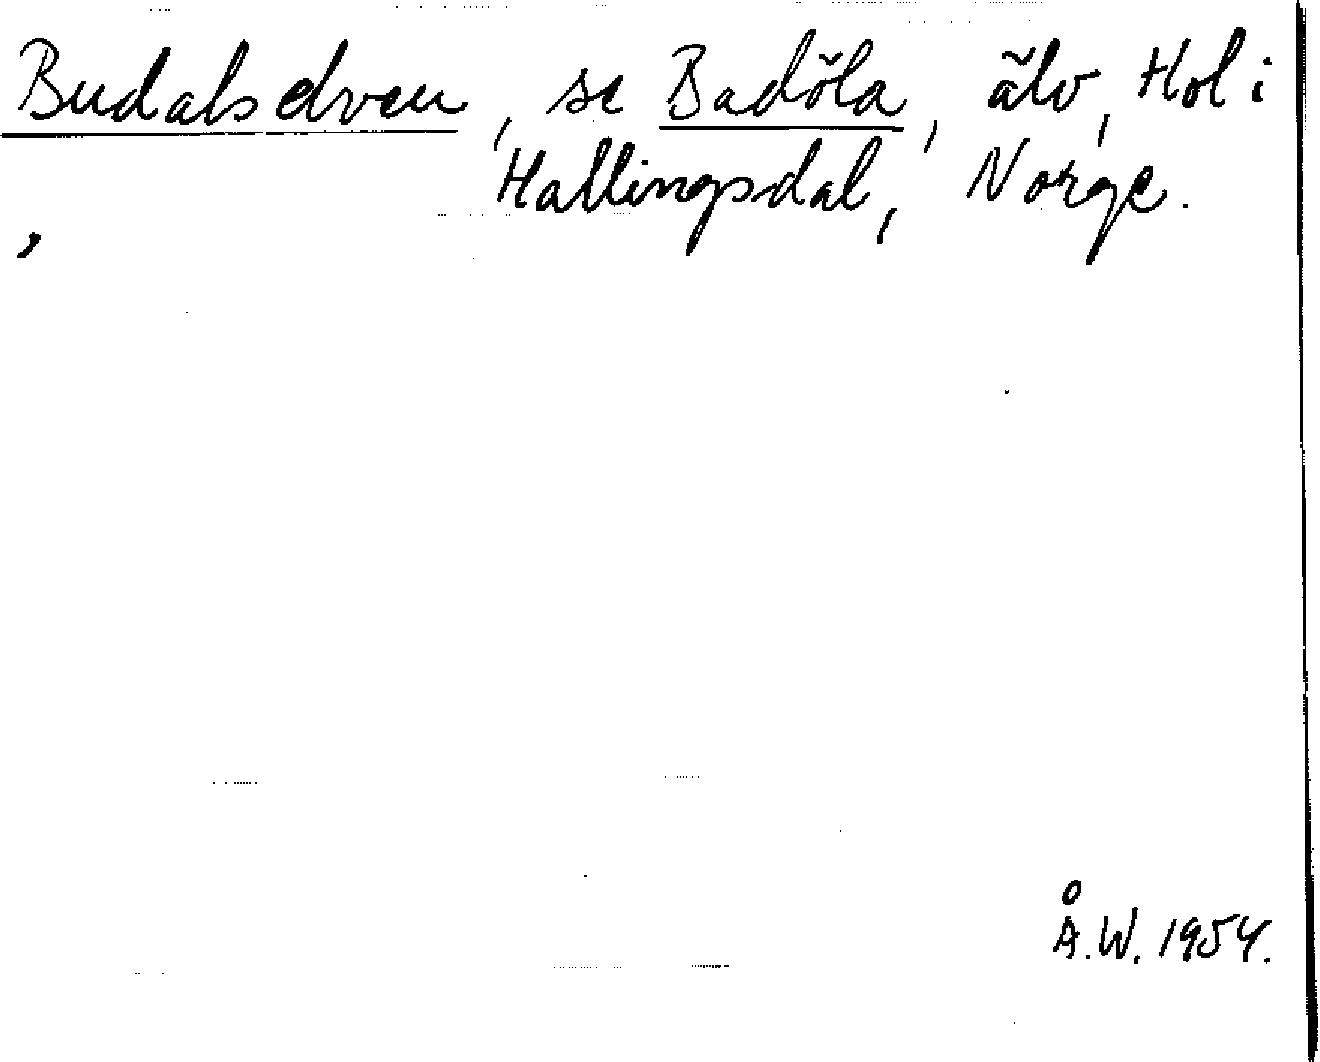 Budalselven, se Badöla, älv, Hol i
Hallingsdal, Norge.
Å.W. 1954.